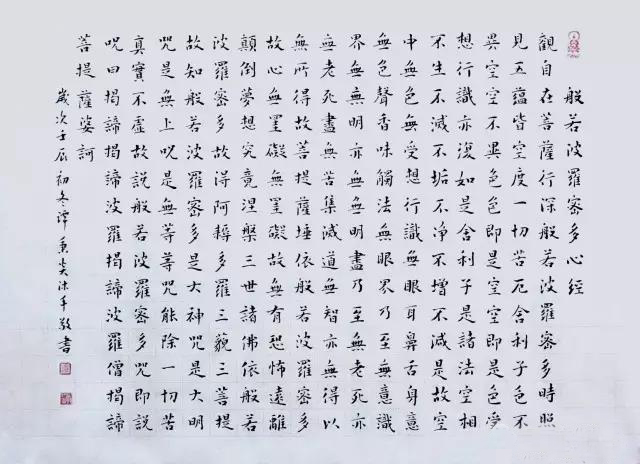 般若波羅密多心經
觀自在菩薩行深般若波羅密多時照
見五蘊皆空度一切苦厄舍利子色不
異空空不異色色即是空空即是色受
想行識亦復如是舍利子是諸法空相
不生不滅不垢不净不增不減是故空
中無色無受想行識無眼耳鼻舌身意
無色聲香味觸法無眼界乃至無意識
界無無明亦無無明盡乃至無老死亦
無老死盡無苦集滅道無智亦無得以
無所得故菩提薩埵依般若波羅密多
故心無罣礙無罣礙故無有恐怖遠離
顛倒夢想究竟涅槃三世諸佛依般若
波羅密多故得阿耨多羅三藐三菩提
故知般若波羅密多是大神咒是大明
咒是無上咒是無等等咒能除一切苦
真實不虛故說般若波羅密多咒即說
咒曰揭諦揭諦波羅揭諦波羅僧揭諦
菩提薩婆訶
歲次壬辰初冬譚沐手敬書